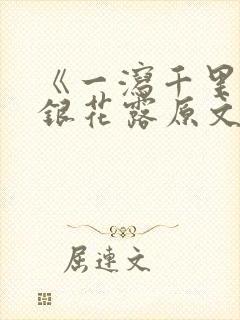 《一瀉千里
銀花露原文
屈連文